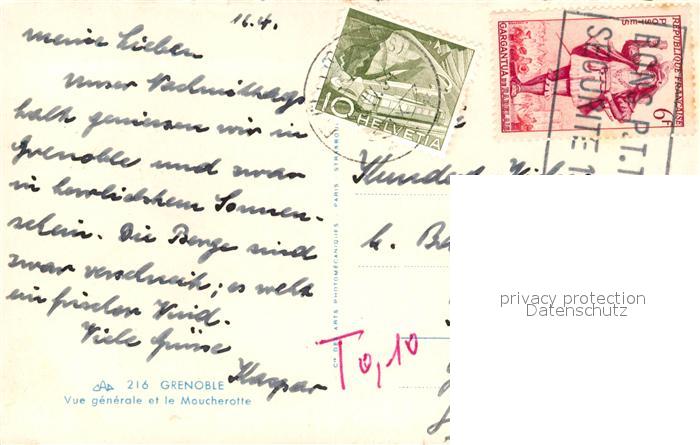 16.4.
meine Lieben
Unser Nachmittags
halt geniessen wir in
Grenoble und zwar
in herrlichstem Sonnen-
schein. Die Berge sind
zwar verschneit; es weht
ein frischer Wind.
Viele Grüsse
Kaspar
216 GRENOBLE
Vue générale et le Moucherotte
CIE DES ARTS PHOTOMÉCANIQUES PARIS STRASBOURG
10 HELVETIA
REPUBLIQUE FRANÇAISE
POSTES
GARGANTUA
6F
BONS P.T.T
SECURITE 1
T 0,10
privacy protection
Datenschutz